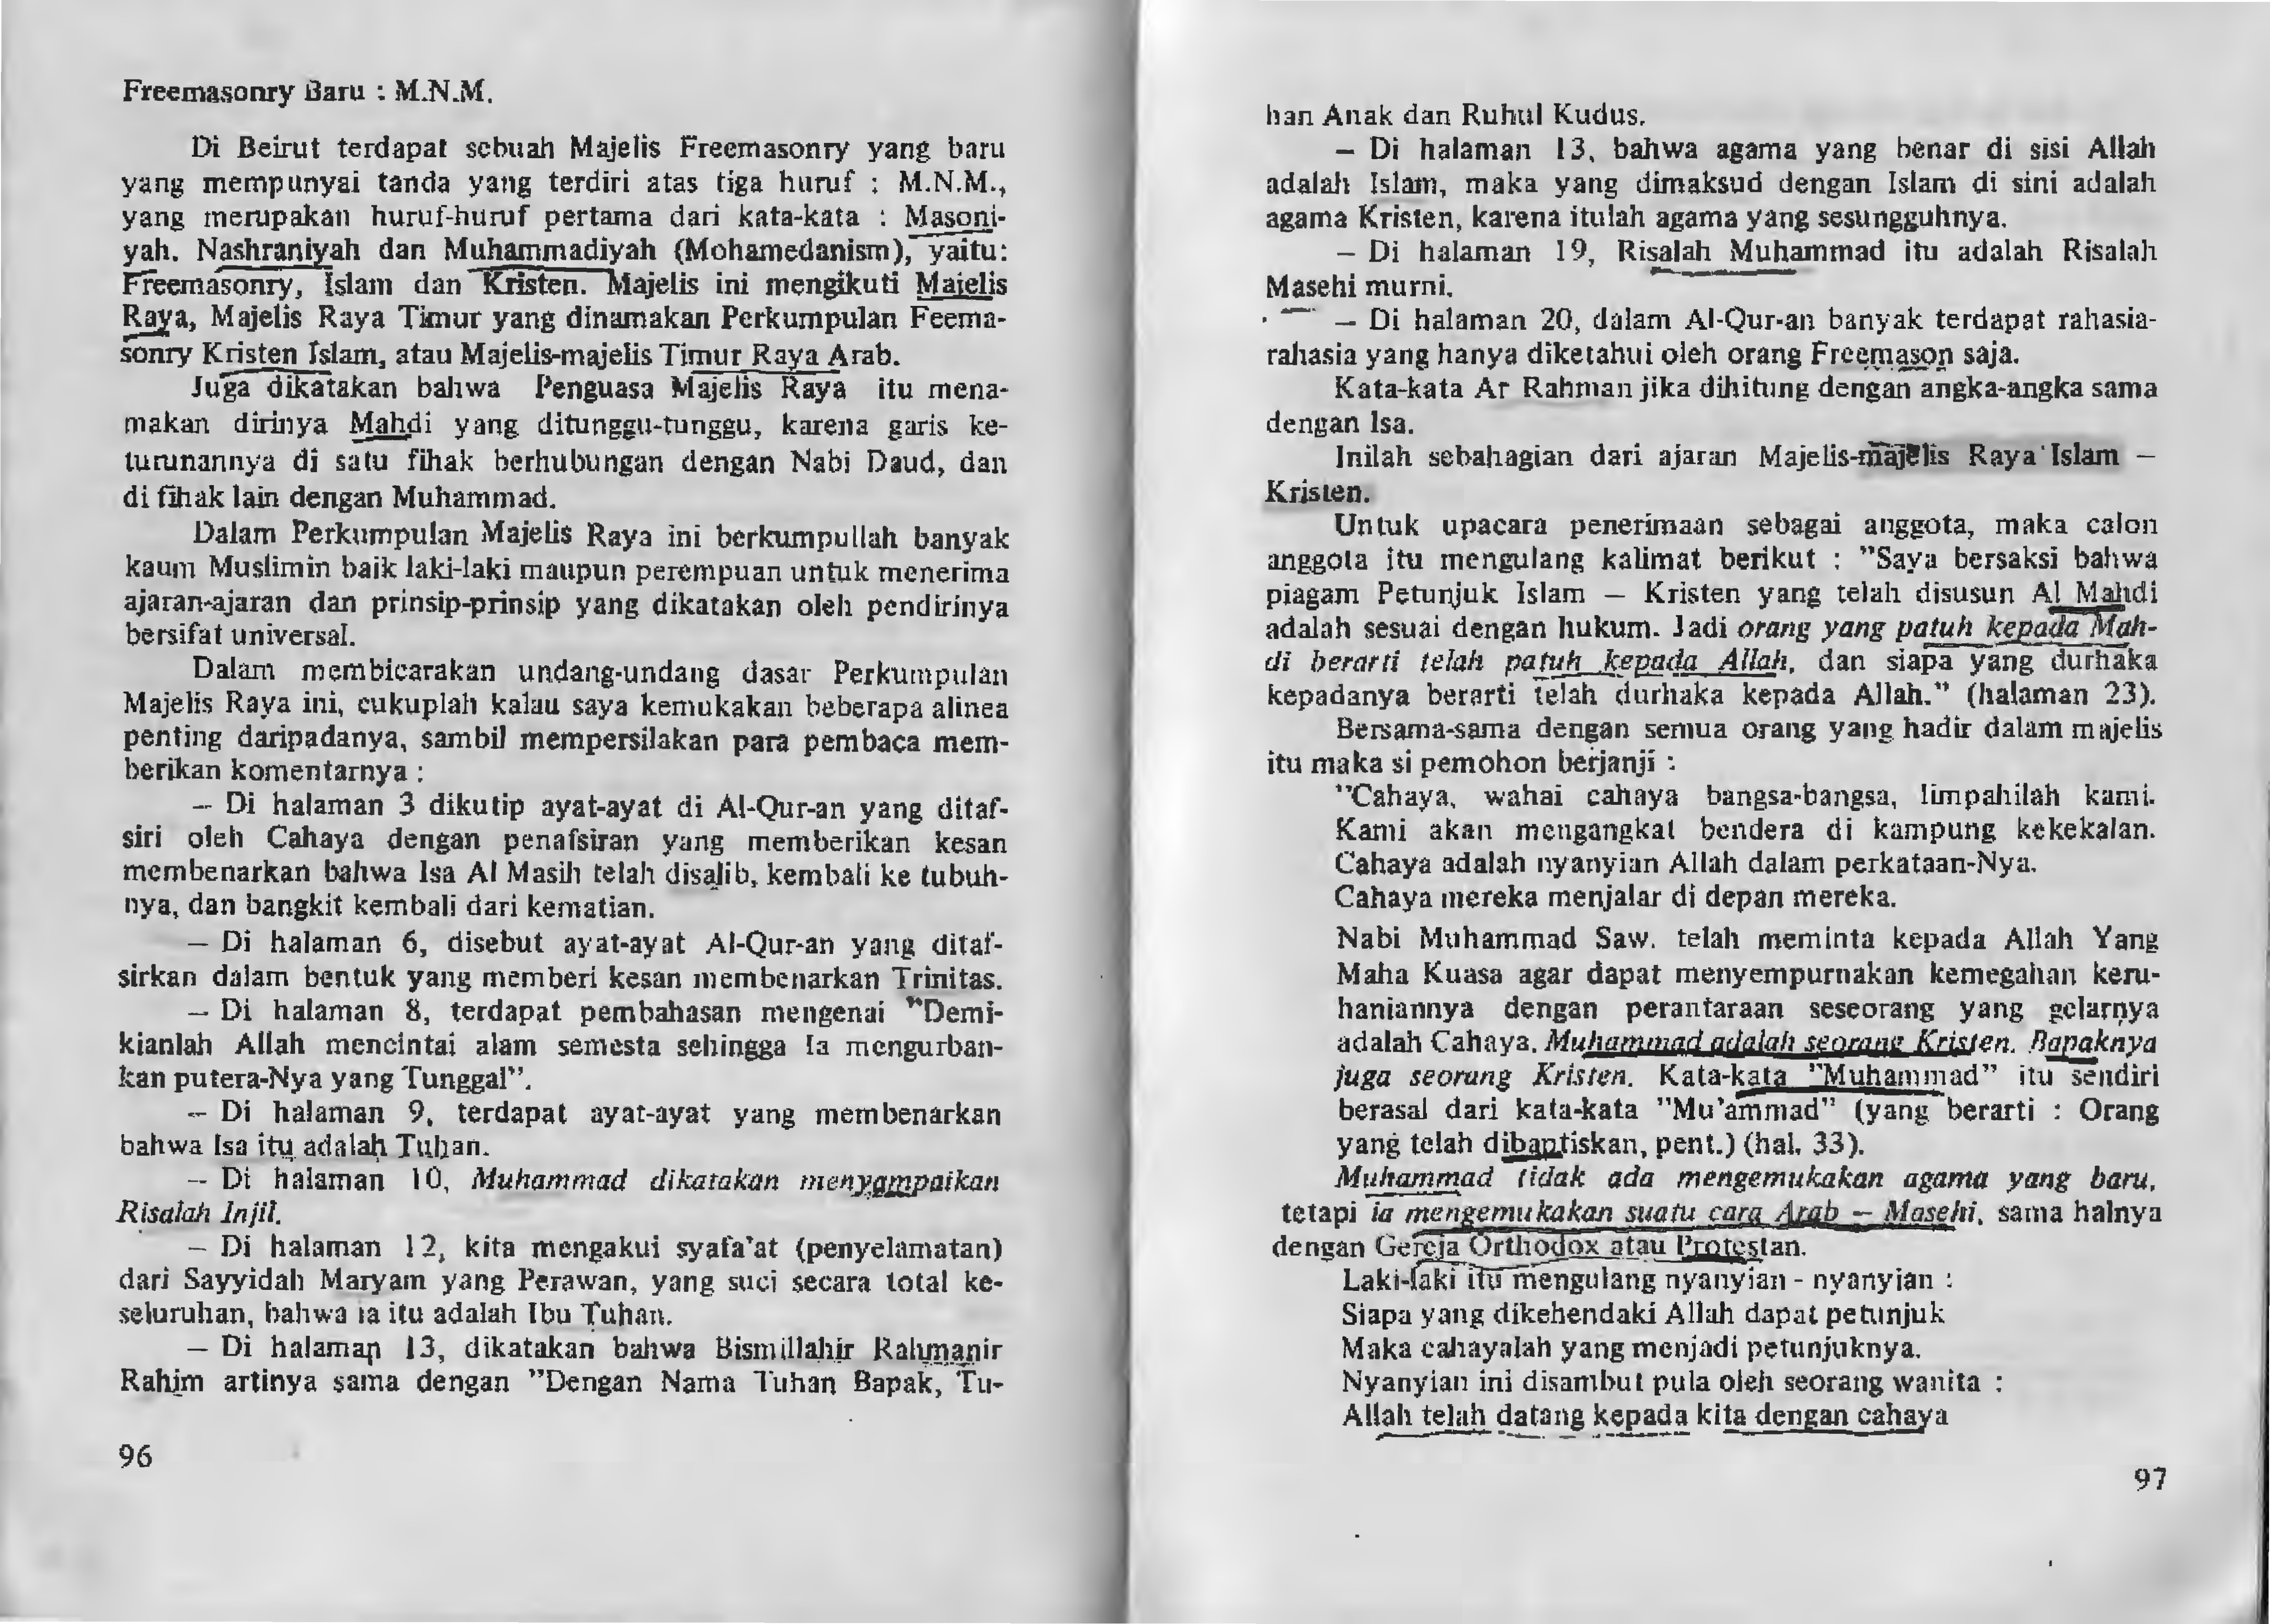 Freemasonry Baru : M.N.M.
Di Beirut terdapat sebuah Majelis Freemasonry yang baru
yang mempunyai tanda yang terdiri atas tiga huruf : M.N.M.,
yang merupakan huruf-huruf pertama dari kata-kata : Masoni-
yah. Nashraniyah dan Muhammadiyah (Mohamedanism), yaitu:
Freemasonry, Islam dan Kristen. Majelis ini mengikuti Majelis
Raya, Majelis Raya Timur yang dinamakan Perkumpulan Feema-
sonry Kristen Islam, atau Majelis-majelis Timur Raya Arab.
Juga dikatakan bahwa Penguasa Majelis Raya itu mena-
makan dirinya Mahdi yang ditunggu-tunggu, karena garis ke-
turunannya di satu fihak berhubungan dengan Nabi Daud, dan
di fihak lain dengan Muhammad.
Dalam Perkumpulan Majelis Raya ini berkumpullah banyak
kaum Muslimin baik laki-laki maupun perempuan untuk menerima
ajaran-ajaran dan prinsip-prinsip yang dikatakan oleh pendirinya
bersifat universal.
Dalam membicarakan undang-undang dasar Perkumpulan
Majelis Raya ini, cukuplah kalau saya kemukakan beberapa alinea
penting daripadanya, sambil mempersilakan para pembaca mem-
berikan komentarnya :
— Di halaman 3 dikutip ayat-ayat di Al-Qur-an yang ditaf-
siri oleh Cahaya dengan penafsiran yang memberikan kesan
membenarkan bahwa Isa Al Masih telah disalib, kembali ke tubuh-
nya, dan bangkit kembali dari kematian.
— Di halaman 6, disebut ayat-ayat Al-Qur-an yang ditaf-
sirkan dalam bentuk yang memberi kesan membenarkan Trinitas.
— Di halaman 8, terdapat pembahasan mengenai "Demi-
kianlah Allah mencintai alam semesta sehingga Ia mengurban-
kan putera-Nya yang Tunggal".
— Di halaman 9, terdapat ayat-ayat yang membenarkan
bahwa Isa itu adalah Tuhan.
— Di halaman 10, Muhammad dikatakan menyampaikan
Risalah Injil.
— Di halaman 12, kita mengakui syafa'at (penyelamatan)
dari Sayyidah Maryam yang Perawan, yang suci secara total ke-
seluruhan, bahwa ia itu adalah Ibu Tuhan.
— Di halaman 13, dikatakan bahwa Bismillahir Rahmanir
Rahim artinya sama dengan "Dengan Nama Tuhan Bapak, Tu-
96
han Anak dan Ruhul Kudus.
— Di halaman 13, bahwa agama yang benar di sisi Allah
adalah Islam, maka yang dimaksud dengan Islam di sini adalah
agama Kristen, karena itulah agama yang sesungguhnya.
— Di halaman 19, Risalah Muhammad itu adalah Risalah
Masehi murni.
— Di halaman 20, dalam Al-Qur-an banyak terdapat rahasia-
rahasia yang hanya diketahui oleh orang Freemason saja.
Kata-kata Ar Rahman jika dihitung dengan angka-angka sama
dengan Isa.
Inilah sebahagian dari ajaran Majelis-majelis Raya Islam —
Kristen.
Untuk upacara penerimaan sebagai anggota, maka calon
anggota itu mengulang kalimat berikut : "Saya bersaksi bahwa
piagam Petunjuk Islam — Kristen yang telah disusun Al Mahdi
adalah sesuai dengan hukum. Jadi orang yang patuh kepada Mah-
di berarti telah patuh kepada Allah, dan siapa yang durhaka
kepadanya berarti telah durhaka kepada Allah." (halaman 23).
Bersama-sama dengan semua orang yang hadir dalam majelis
itu maka si pemohon berjanji :
"Cahaya, wahai cahaya bangsa-bangsa, limpahilah kami.
Kami akan mengangkat bendera di kampung kekekalan.
Cahaya adalah nyanyian Allah dalam perkataan-Nya.
Cahaya mereka menjalar di depan mereka.
Nabi Muhammad Saw. telah meminta kepada Allah Yang
Maha Kuasa agar dapat menyempurnakan kemegahan keru-
haniannya dengan perantaraan seseorang yang gelarnya
adalah Cahaya. Muhammad adalah seorang Kristen. Bapaknya
juga seorang Kristen. Kata-kata "Muhammad" itu sendiri
berasal dari kata-kata "Mu'ammad" (yang berarti : Orang
yang telah dibaptiskan, pent.) (hal. 33).
Muhammad tidak ada mengemukakan agama yang baru,
tetapi ia mengemukakan suatu cara Arab — Masehi, sama halnya
dengan Gereja Orthodox atau Protestan.
Laki-laki itu mengulang nyanyian - nyanyian :
Siapa yang dikehendaki Allah dapat petunjuk
Maka cahayalah yang menjadi petunjuknya.
Nyanyian ini disambut pula oleh seorang wanita :
Allah telah datang kepada kita dengan cahaya
97